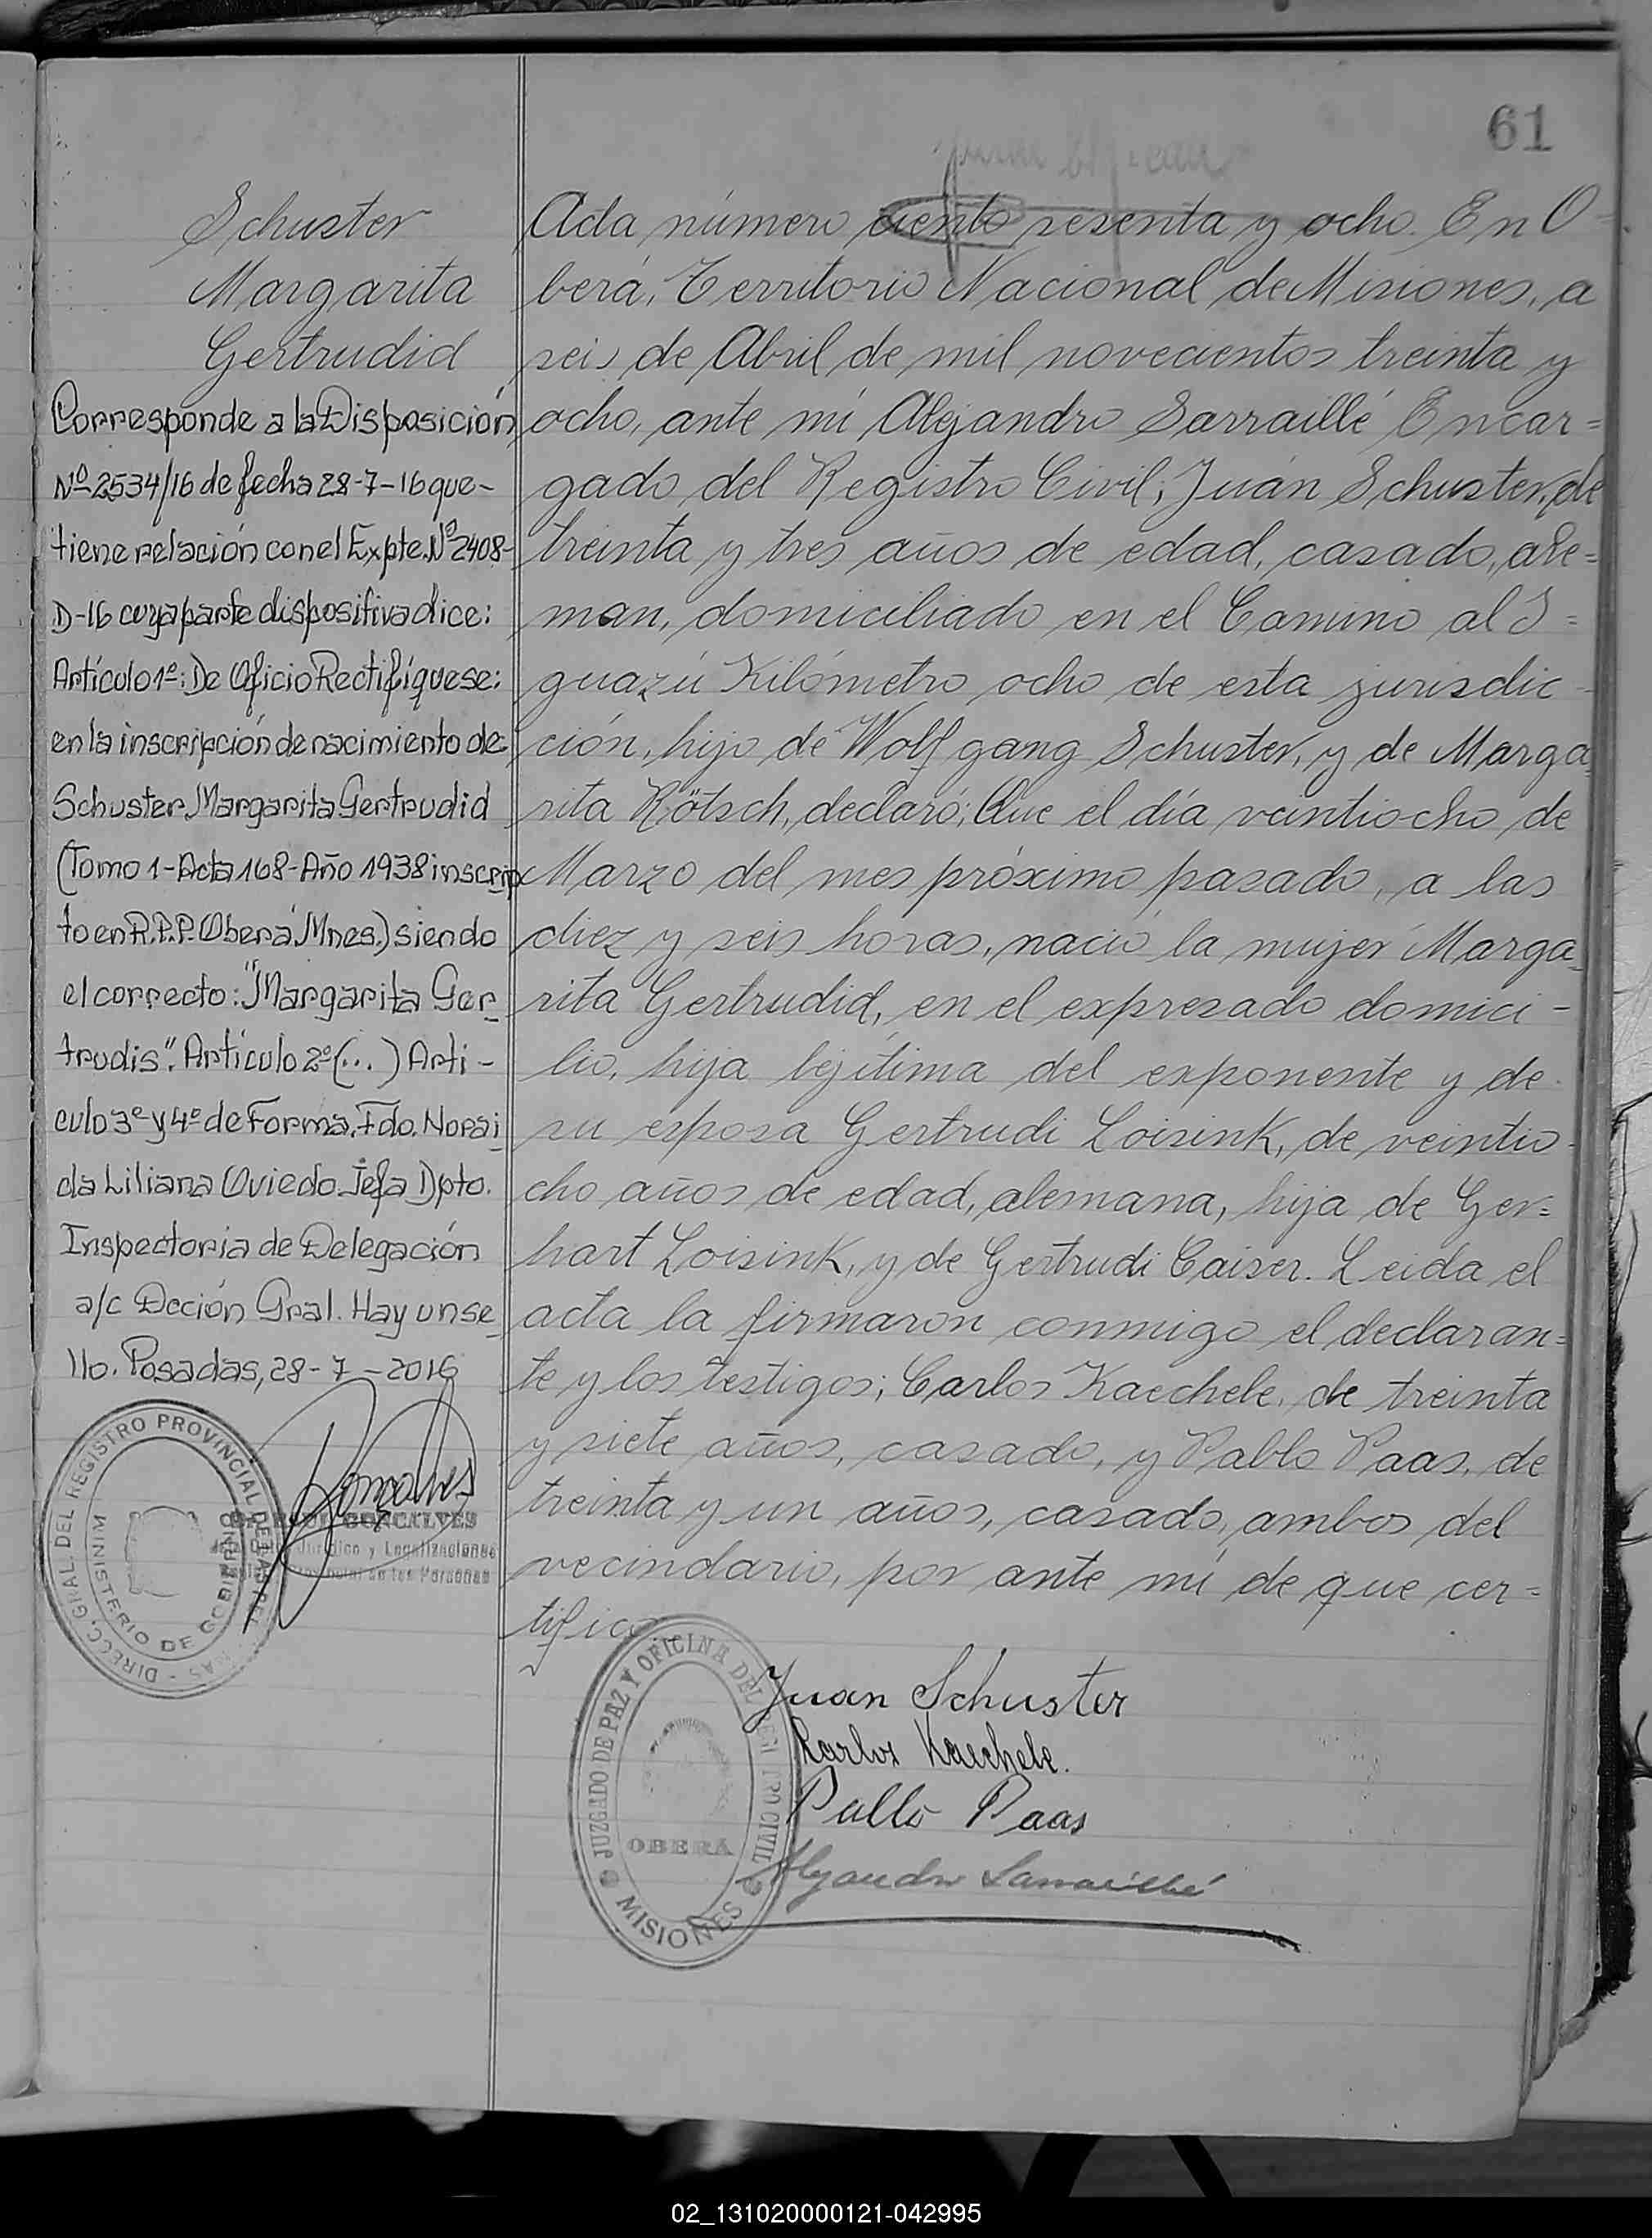 61
Schuster
Margarita
Gertrudid
Corresponde a la Disposición
Nº 2534/16 de fecha 28-7-16 que-
tiene relación con el Expte. Nº 2408-
D-16 cuya parte dispositiva dice:
Artículo 1º: De Oficio Rectifíquese:
en la inscripción de nacimiento de
Schuster Margarita Gertrudid
(Tomo 1-Acta 168-Año 1938 inscrip
to en R.P.P. Oberá Mnes.) siendo
el correcto: "Margarita Ger_
trudis". Artículo 2º (...) Arti-
culo 3º y 4º de Forma. Fdo. Norai_
da Liliana Oviedo Jefa Dpto.
Inspectoria de Delegación
a/c Dcción Gral. Hay un se_
llo. Posadas, 28-7-2016
DIRECC. GRAL. DEL REGISTRO PROVINCIAL DE LAS PER
MINISTERIO DE GOBIERNO
GONCALVES
Jurídico y Legalizaciones
Provincial de las Personas
Acta número ciento sesenta y ocho. En O=
berá, Territorio Nacional de Misiones, a
seis de Abril de mil novecientos treinta y
ocho, ante mi Alejandro Sarraillé Encar=
gado del Registro Civil; Juan Schuster, de
treinta y tres años de edad, casado, ale=
man, domiciliado en el Camino al I=
guazú Kilómetro ocho de esta jurisdic-
ción, hijo de Wolfgang Schuster, y de Marga_
rita Rötsch, declaró; Que el día veintiocho de
Marzo del mes próximo pasado, a las
diez y seis horas, nació la mujer Marga_
rita Gertrudid, en el expresado domici-
lio, hija lejítima del exponente y de
su esposa Gertrudi Loisink, de veintio-
cho años de edad, alemana, hija de Ger=
hart Loisink, y de Gertrudi Caiser. Leida el
acta la firmaron conmigo el declaran=
te y los testigos; Carlos Kaechele, de treinta
y siete años, casado, y Pablo Paas, de
treinta y un años, casado, ambos del
vecindario, por ante mí de que cer=
tifico
JUZGADO DE PAZ Y OFICINA DEL REGISTRO CIVIL
OBERÁ
MISIONES
Juan Schuster
Karlos Kaechele.
Pablo Paas
Alejandro Sarraillé
02_131020000121-042995